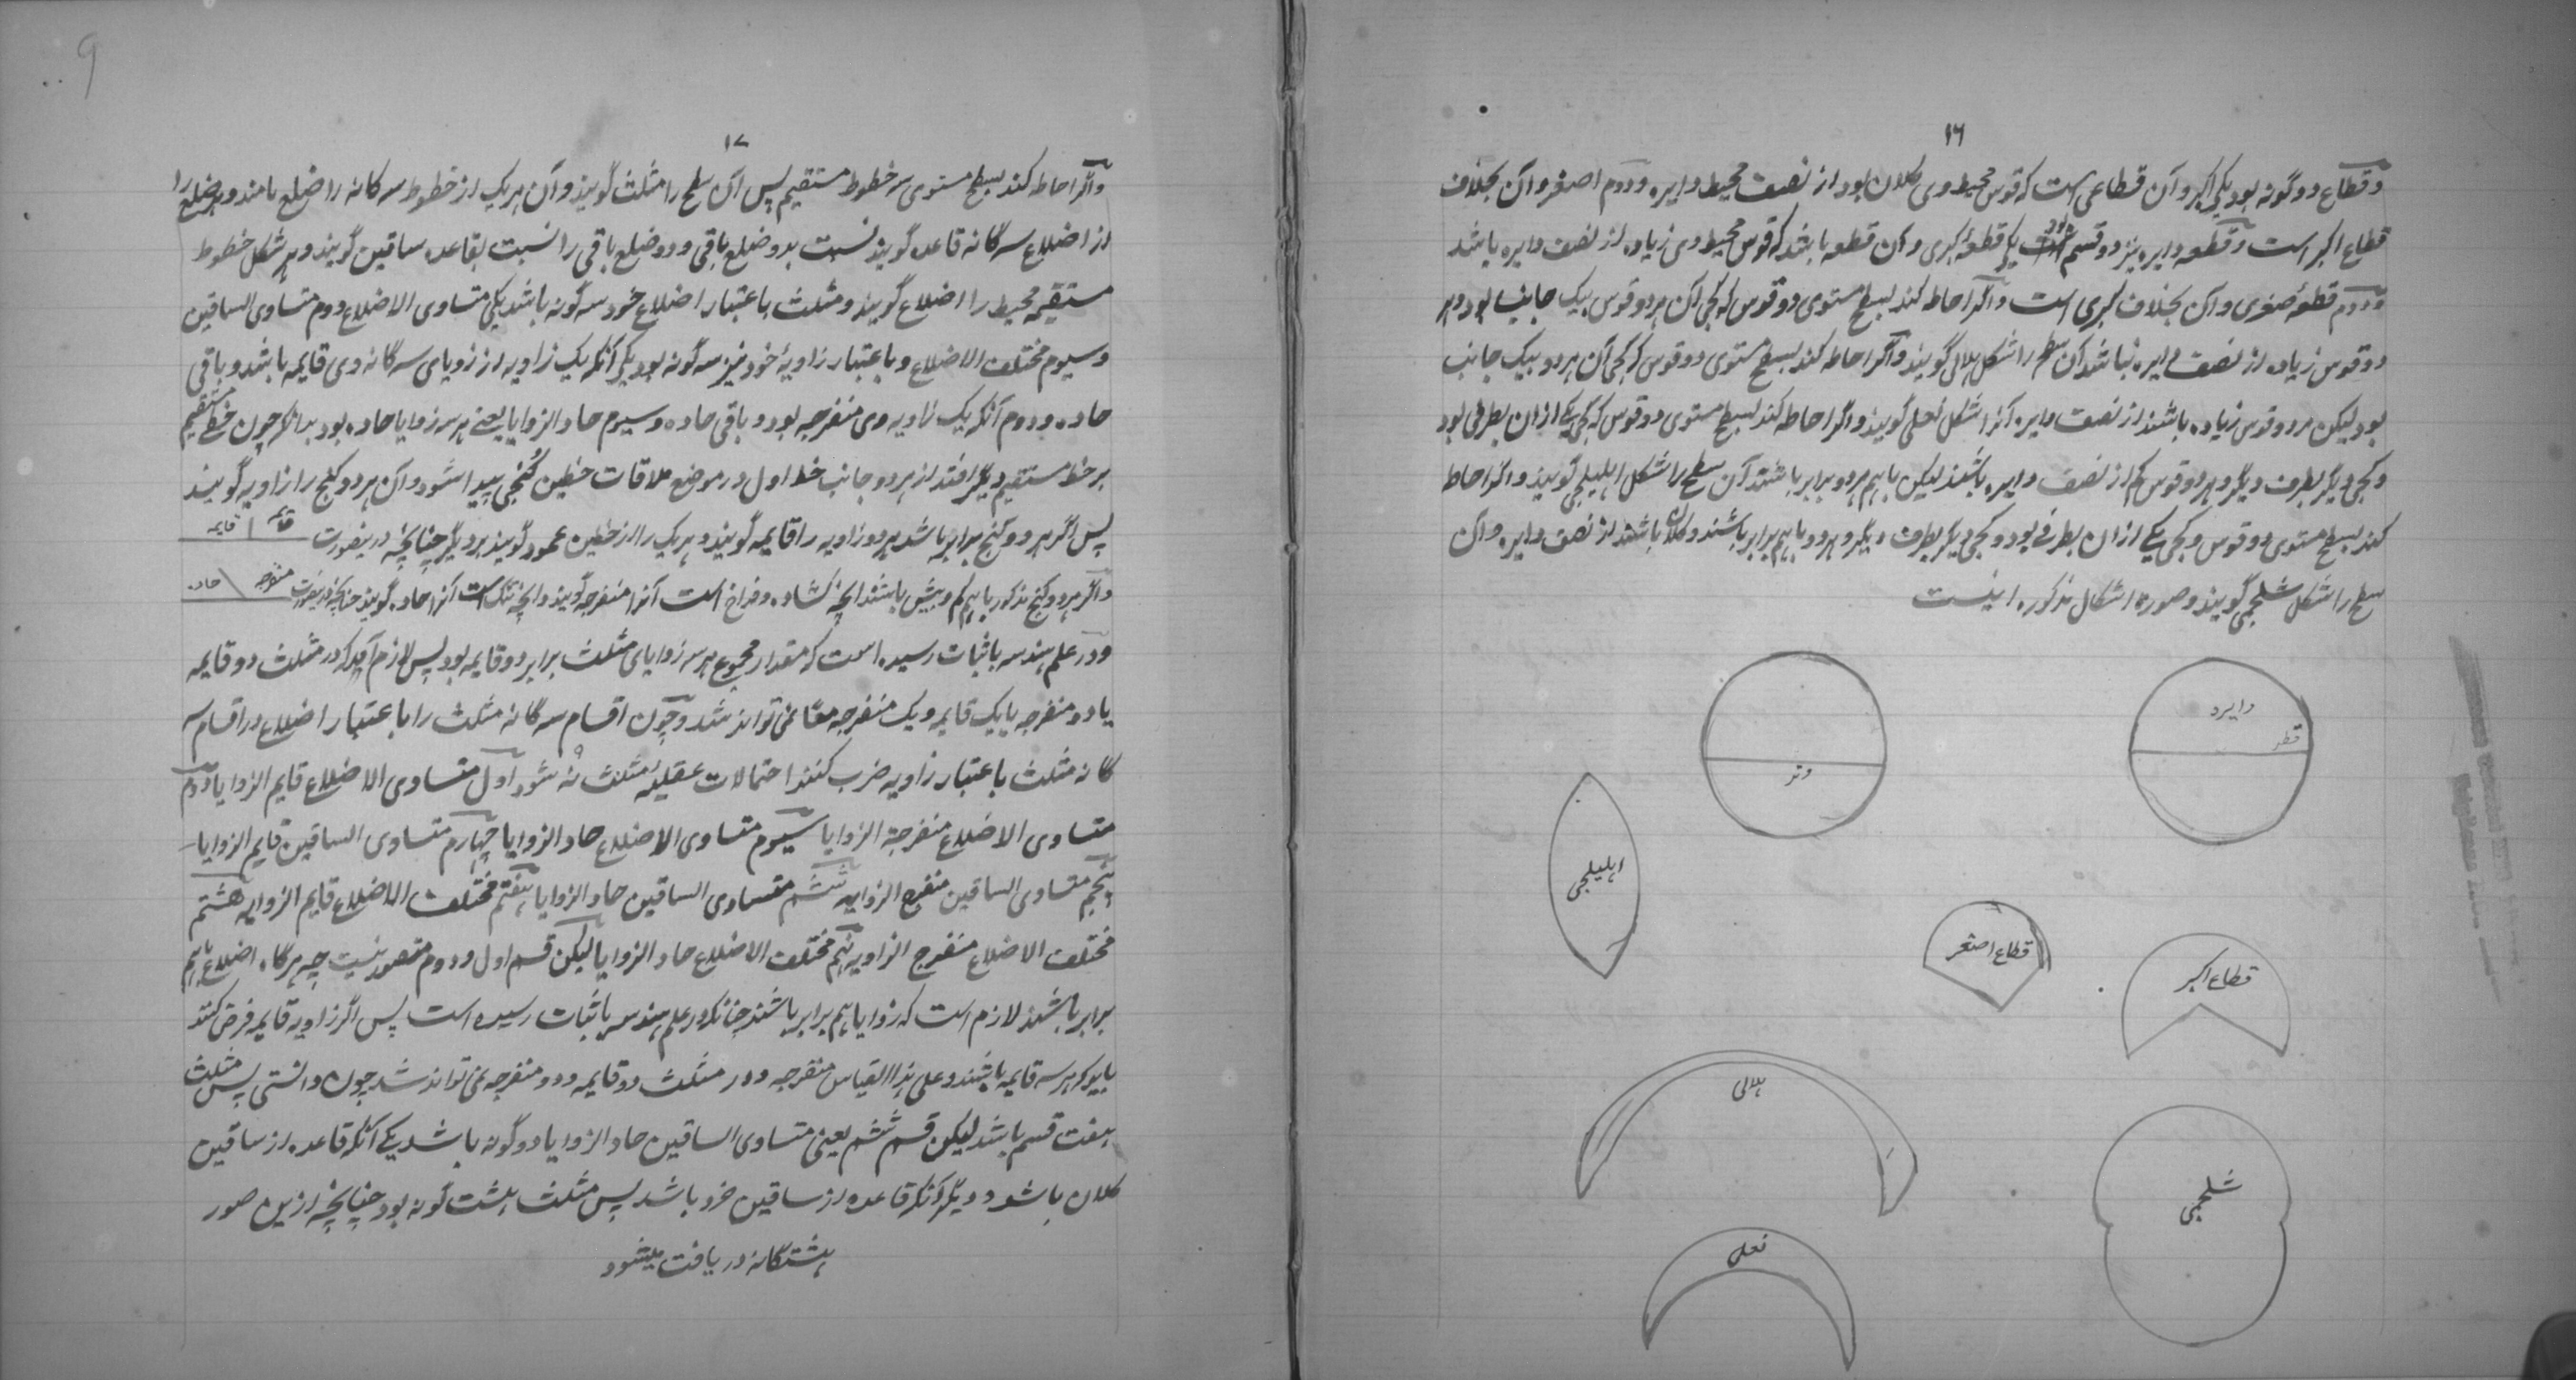 ١٦
و قطاع دو گونه بود یکی اکبر و آن قطاعی است که قوس محیط وی کلان بود از نصف محیط دایره و دوم اصغر و آن بخلاف
قطاع اکبر است و قطعه دایره نیز دو قسم است یکی قطعهٔ کبری و آن قطعه باشد که قوس محیط وی زیاده از نصف دایره باشد
و دوم قطعهٔ صغری و آن بخلاف کبری است و اگر احاطه کند بسطح مستوی دو قوس که کجی آن هر دو قوس بیک جانب بود و هر
دو قوس زیاده از نصف دایره نباشد آن سطح را شکل هلالی گویند و اگر احاطه کند بسطح مستوی دو قوس که کجی آن هر دو بیک جانب
بود لیکن هر دو قوس زیاده باشند از نصف دایره آنرا شکل نعلی گویند و اگر احاطه کند بسطح مستوی دو قوس که کجی یکی ازان بطرفی بود
و کجی دیگر بطرف دیگر و هر دو قوس کم از نصف دایره باشند لیکن باهم هر دو برابر باشند آن سطح را شکل اهلیلجی گویند و اگر احاطه
کند بسطح مستوی دو قوس و کجی یکی ازان بطرفی بود و کجی دیگر بطرف دیگر و هر دو باهم برابر باشند و کلان باشند از نصف دایره و آن
سطح را شکل شلجمی گویند و صورة اشکال مذکوره اینست
دایره
قطر
وتر
اهلیلجی
قطاع اصغر
قطاع اکبر
هلالی
شلجمی
نعلی
١٧
و اگر احاطه کند بسطح مستوی سه خطوط مستقیم پس آن سطح را مثلث گویند و آن هر یک از خطوط سه کانه را ضلع نامند و هر ضلع را
از اضلاع سه گانه قاعده گویند نسبت بدو ضلع باقی و دو ضلع باقی را نسبت بقاعده ساقین گویند و هر شکل خطوط
مستقیمه محیط را اضلاع گویند و مثلث باعتبار اضلاع خود سه گونه باشد یکی متساوی الاضلاع دوم متساوی الساقین
و سیوم مختلف الاضلاع و باعتبار زاویهٔ خود نیز سه گونه بود یکی آنکه یک زاویه از زوایای سه گانه وی قایمه باشد و باقی
حاده و دوم آنکه یک زاویه وی منفرجه بود و باقی حاده و سیوم حاد الزوایا یعنی هر سه زوایا حاده بود بدانکه چون خطی مستقیم
بر خط مستقیم دیگر افتد از هر دو جانب خط اول در موضع ملاقات خطین کُنجی پیدا شود و آن هر دو کنج را زاویه گویند
پس اگر هر دو کنج برابر باشد هر دو زاویه را قایمه گویند و هر یک را از خطین عمود گویند بر دیگر چنانچه درینصورت قایمه قایمه
و اگر هر دو کنج مذکور باهم کم و بیش باشند انچه کشاده و فراخ است آنرا منفرجه گویند و انچه تنگ است آنرا حاده گویند چنانچه درینصورت منفرجه حاده
و در علم هندسه باثبات رسیده است که مقدار مجموع هر سه زوایای مثلث برابر دو قایمه بود پس لازم آید که در مثلث دو قایمه
یا دو منفرجه یا یک قایمه و یک منفرجه معًا نمی تواند شد و چون اقسام سه گانه مثلث را باعتبار اضلاع در اقسام سه
گانه مثلث باعتبار زاویه ضرب کنند احتمالات عقلیه مثلث نُه شود اول متساوی الاضلاع قایم الزوایا دوم
متساوی الاضلاع منفرجة الزوایا سیوم متساوی الاضلاع حاد الزوایا چهارم متساوی الساقین قایم الزوایا
پنجم متساوی الساقین منفرج الزاویه ششم متساوی الساقین حاد الزوایا هفتم مختلف الاضلاع قایم الزوایه هشتم
مختلف الاضلاع منفرج الزاویه نهم مختلف الاضلاع حاد الزوایا لیکن قسم اول و دوم متصور نیست چه هرگاه اضلاع باهم
برابر باشند لازم است که زوایا هم برابر باشند چنانکه در علم هندسه باثبات رسیده است پس اگر زاویه قایمه فرض کنند
باید که هر سه قایمه باشند و علی هذا القیاس منفرجه و در مثلث دو قایمه و دو منفرجه نمی تواند شد چون دانستی پس مثلث
هفت قسم باشد لیکن قسم ششم یعنی متساوی الساقین حاد الزوایا دو گونه باشد یکی آنکه قاعده از ساقین
کلان باشد و دیگر آنکه قاعده از ساقین خرد باشد پس مثلث هشت گونه بود چنانچه ازین صور
هشتگانه دریافت میشود